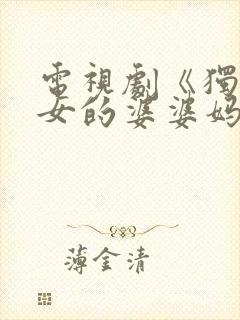 電視劇《獨
女的婆婆媽
薄金清